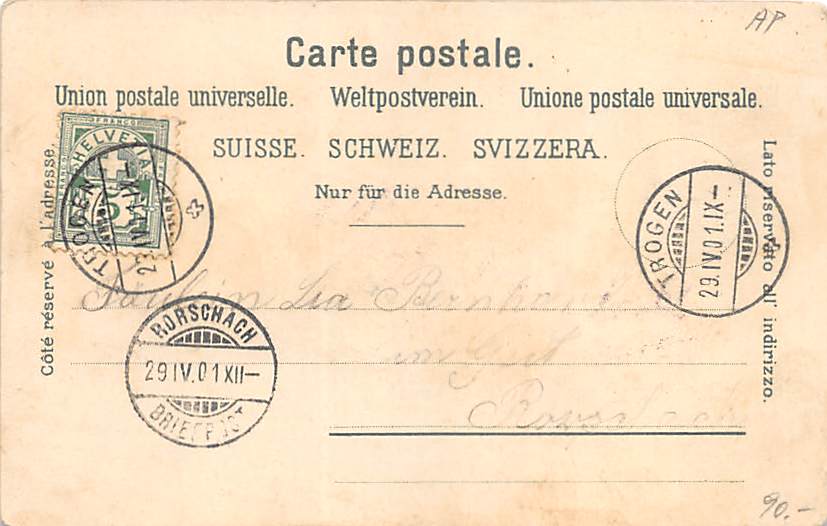 AP
Carte postale.
Union postale universelle. Weltpostverein. Unione postale universale.
SUISSE. SCHWEIZ. SVIZZERA.
Nur für die Adresse.
Côté réservé à l'adresse.
Lato riservato all' indirizzo.
FRANCO
HELVETIA
5
TROGEN
29.IV.01.IX-
TROGEN
29.IV.01.IX-
Fräulein
RORSCHACH
29 IV.01 XII-
BRIEFPOST
Rorschach
90.-